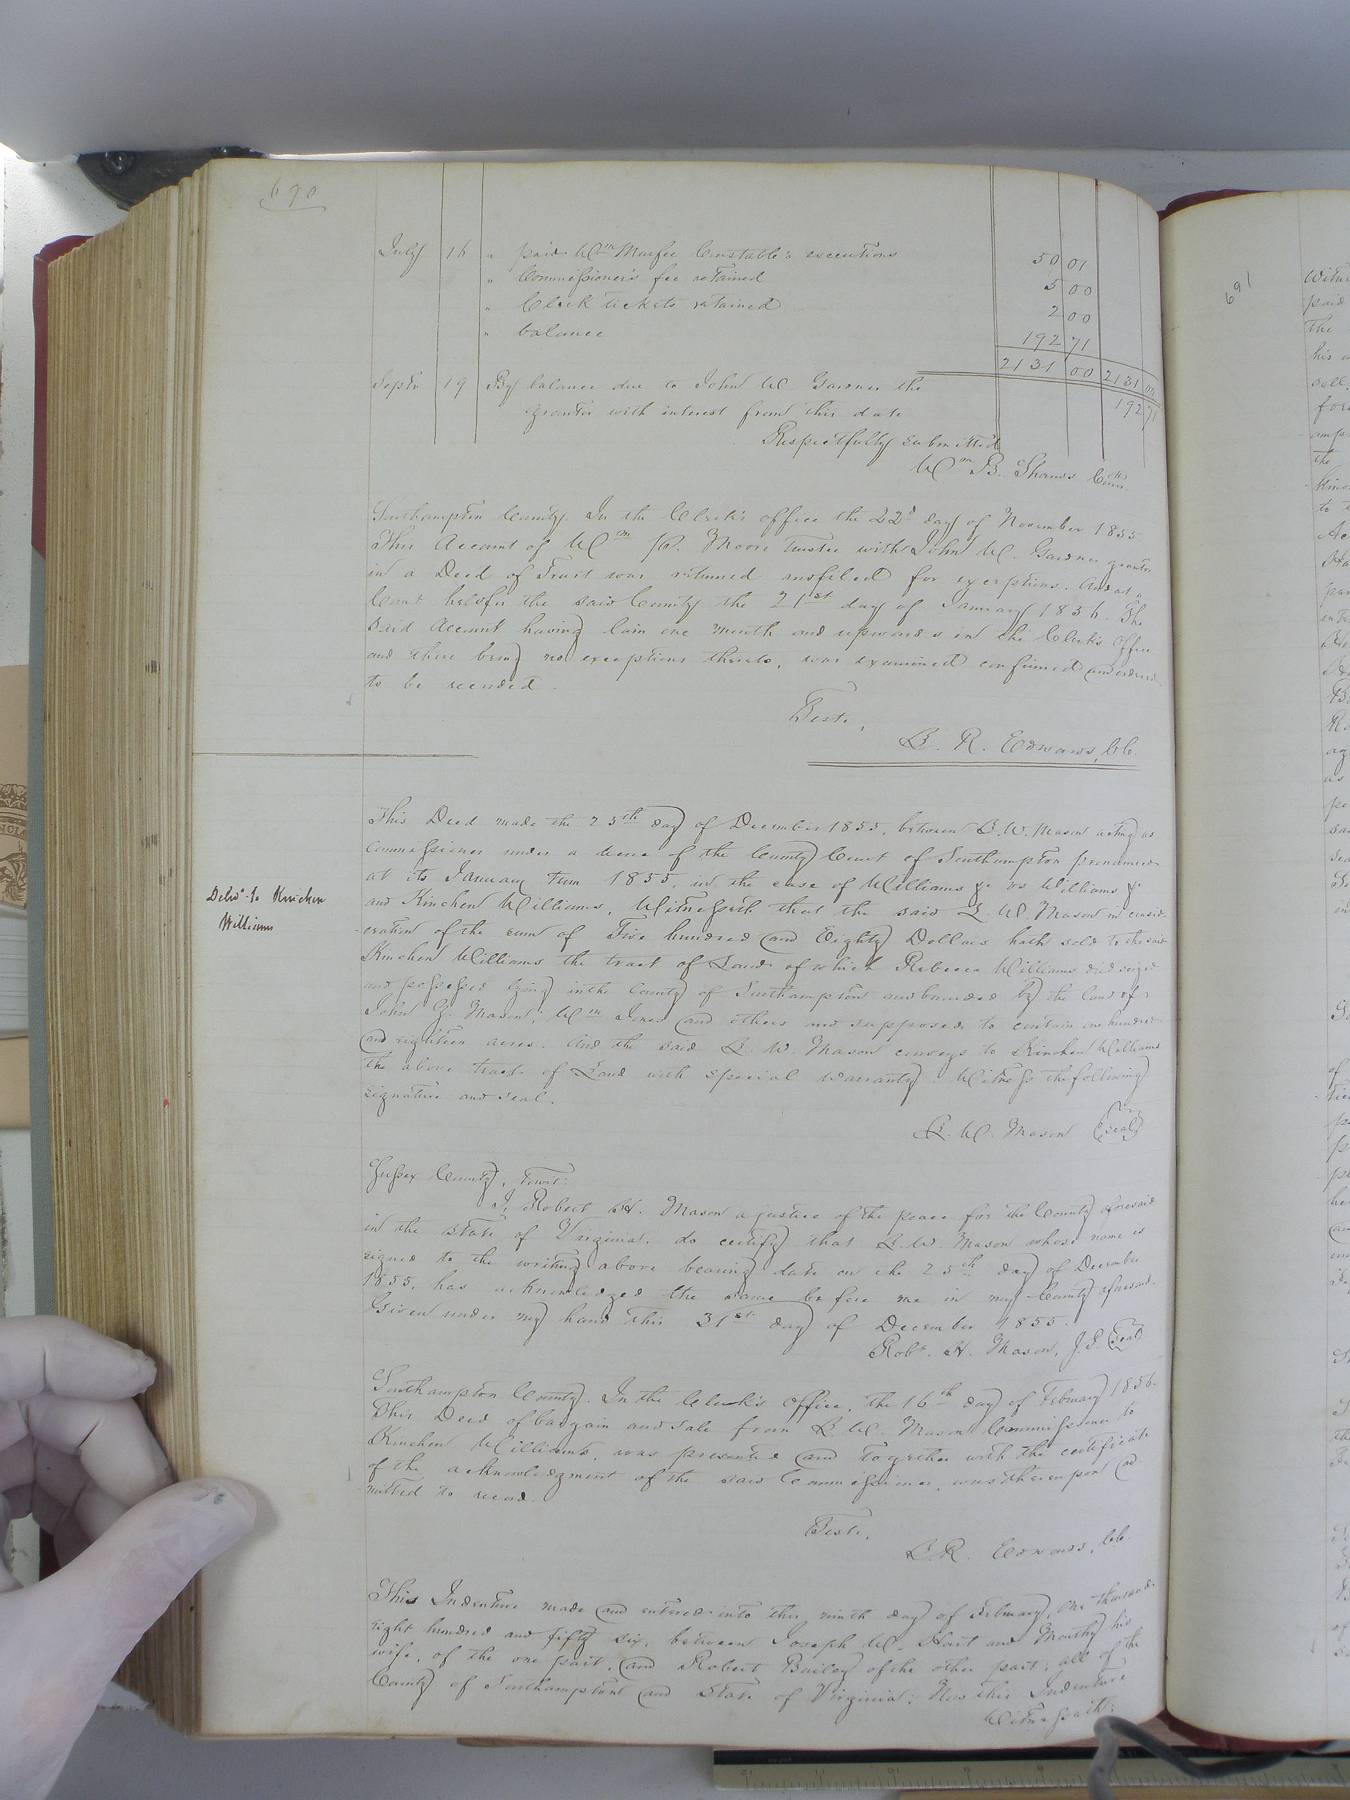 690
July 16 " paid Wm Murfee Constable's executions 50 01
" Commissioner's fee retained 5 00
" Clerk tickets retained 2 00
" balance 192 71
2131 00 2131 00
Septr 19 By balance due to John W. Gardner the 192 71
grantor with interest from this date
Respectfully submitted
Wm B. Shands Comr.
Southampton County. In the Clerk's office the 22d day of November 1855
This Account of Wm H. Moore Trustee with John W. Gardner grantor
in a Deed of Trust was returned and filed for exceptions. And at a
Court held for the said County the 21st day of January 1856. The
said Account having lain one month and upwards in the Clerk's Office
and there being no exceptions thereto, was examined confirmed and ordered
to be recorded.
Teste,
L. R. Edwards, C.C.
This Deed made the 25th day of December 1855, between L. W. Mason acting as
Commissioner under a decree of the County Court of Southampton pronounced
at its January term 1855, in the case of Williams &c vs Williams &c
Deld. to Kinchen
Williams
and Kinchen Williams, Witnesseth that the said L. W. Mason in consid-
eration of the sum of Five hundred and Eighty Dollars hath sold to the said
Kinchen Williams the tract of Land of which Rebecca Williams died seized
and possessed lying in the County of Southampton and bounded by the land of
John Y. Mason, Wm Jones and others and supposed to contain one hundred
and eighteen acres. And the said L. W. Mason conveys to Kinchen Williams
the above tract of Land with special warranty. Witness the following
signature and seal.
L. W. Mason (seal)
Sussex County, towit:
I, Robert H. Mason a justice of the peace for the County aforesaid
in the State of Virginia, do certify that L. W. Mason whose name is
signed to the writing above bearing date on the 25th day of December
1855, has acknowledged the same before me in my County aforesaid.
Given under my hand this 31st day of December 1855.
Robt. H. Mason, J.P. (Seal)
Southampton County. In the Clerk's Office, the 16th day of February 1856.
This Deed of bargain and sale from L. W. Mason Commissioner to
Kinchen Williams, was presented and together with the certificate
of the acknowledgment of the said Commissioner, was thereupon ad
mitted to record.
Teste,
L. R. Edwards, C.C.
This Indenture made and entered into this ninth day of February, one thousand
eight hundred and fifty six, between Joseph W. Hart and his
wife, of the one part, and Robert Bailey of the other part; all of the
County of Southampton and State of Virginia: Now this Indenture
Witnesseth:
691